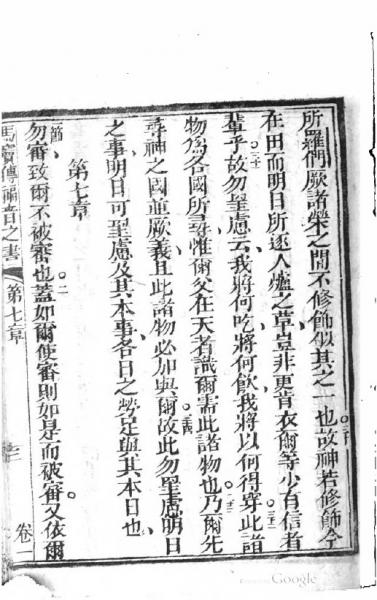 所羅們厥諸榮之間不修飾似其之一也。三十故神若修飾今
在田而明日所逐人爐之草豈非更肯衣爾等少有信者
輩乎故勿罣慮云我將何吃將何飲我將以何得穿此諸
物為各國所尋惟爾父在天者識爾需此諸物也乃爾先
尋神之國並厥義且此諸物必加與爾故此勿罣慮明日
之事明日可罣慮及其本事各日之勞足與其本日也
第七章
一節勿審致爾不被審也。二蓋如爾使審則如是而被審又依爾
馬竇傳福音之書 第七章 卷一
Google